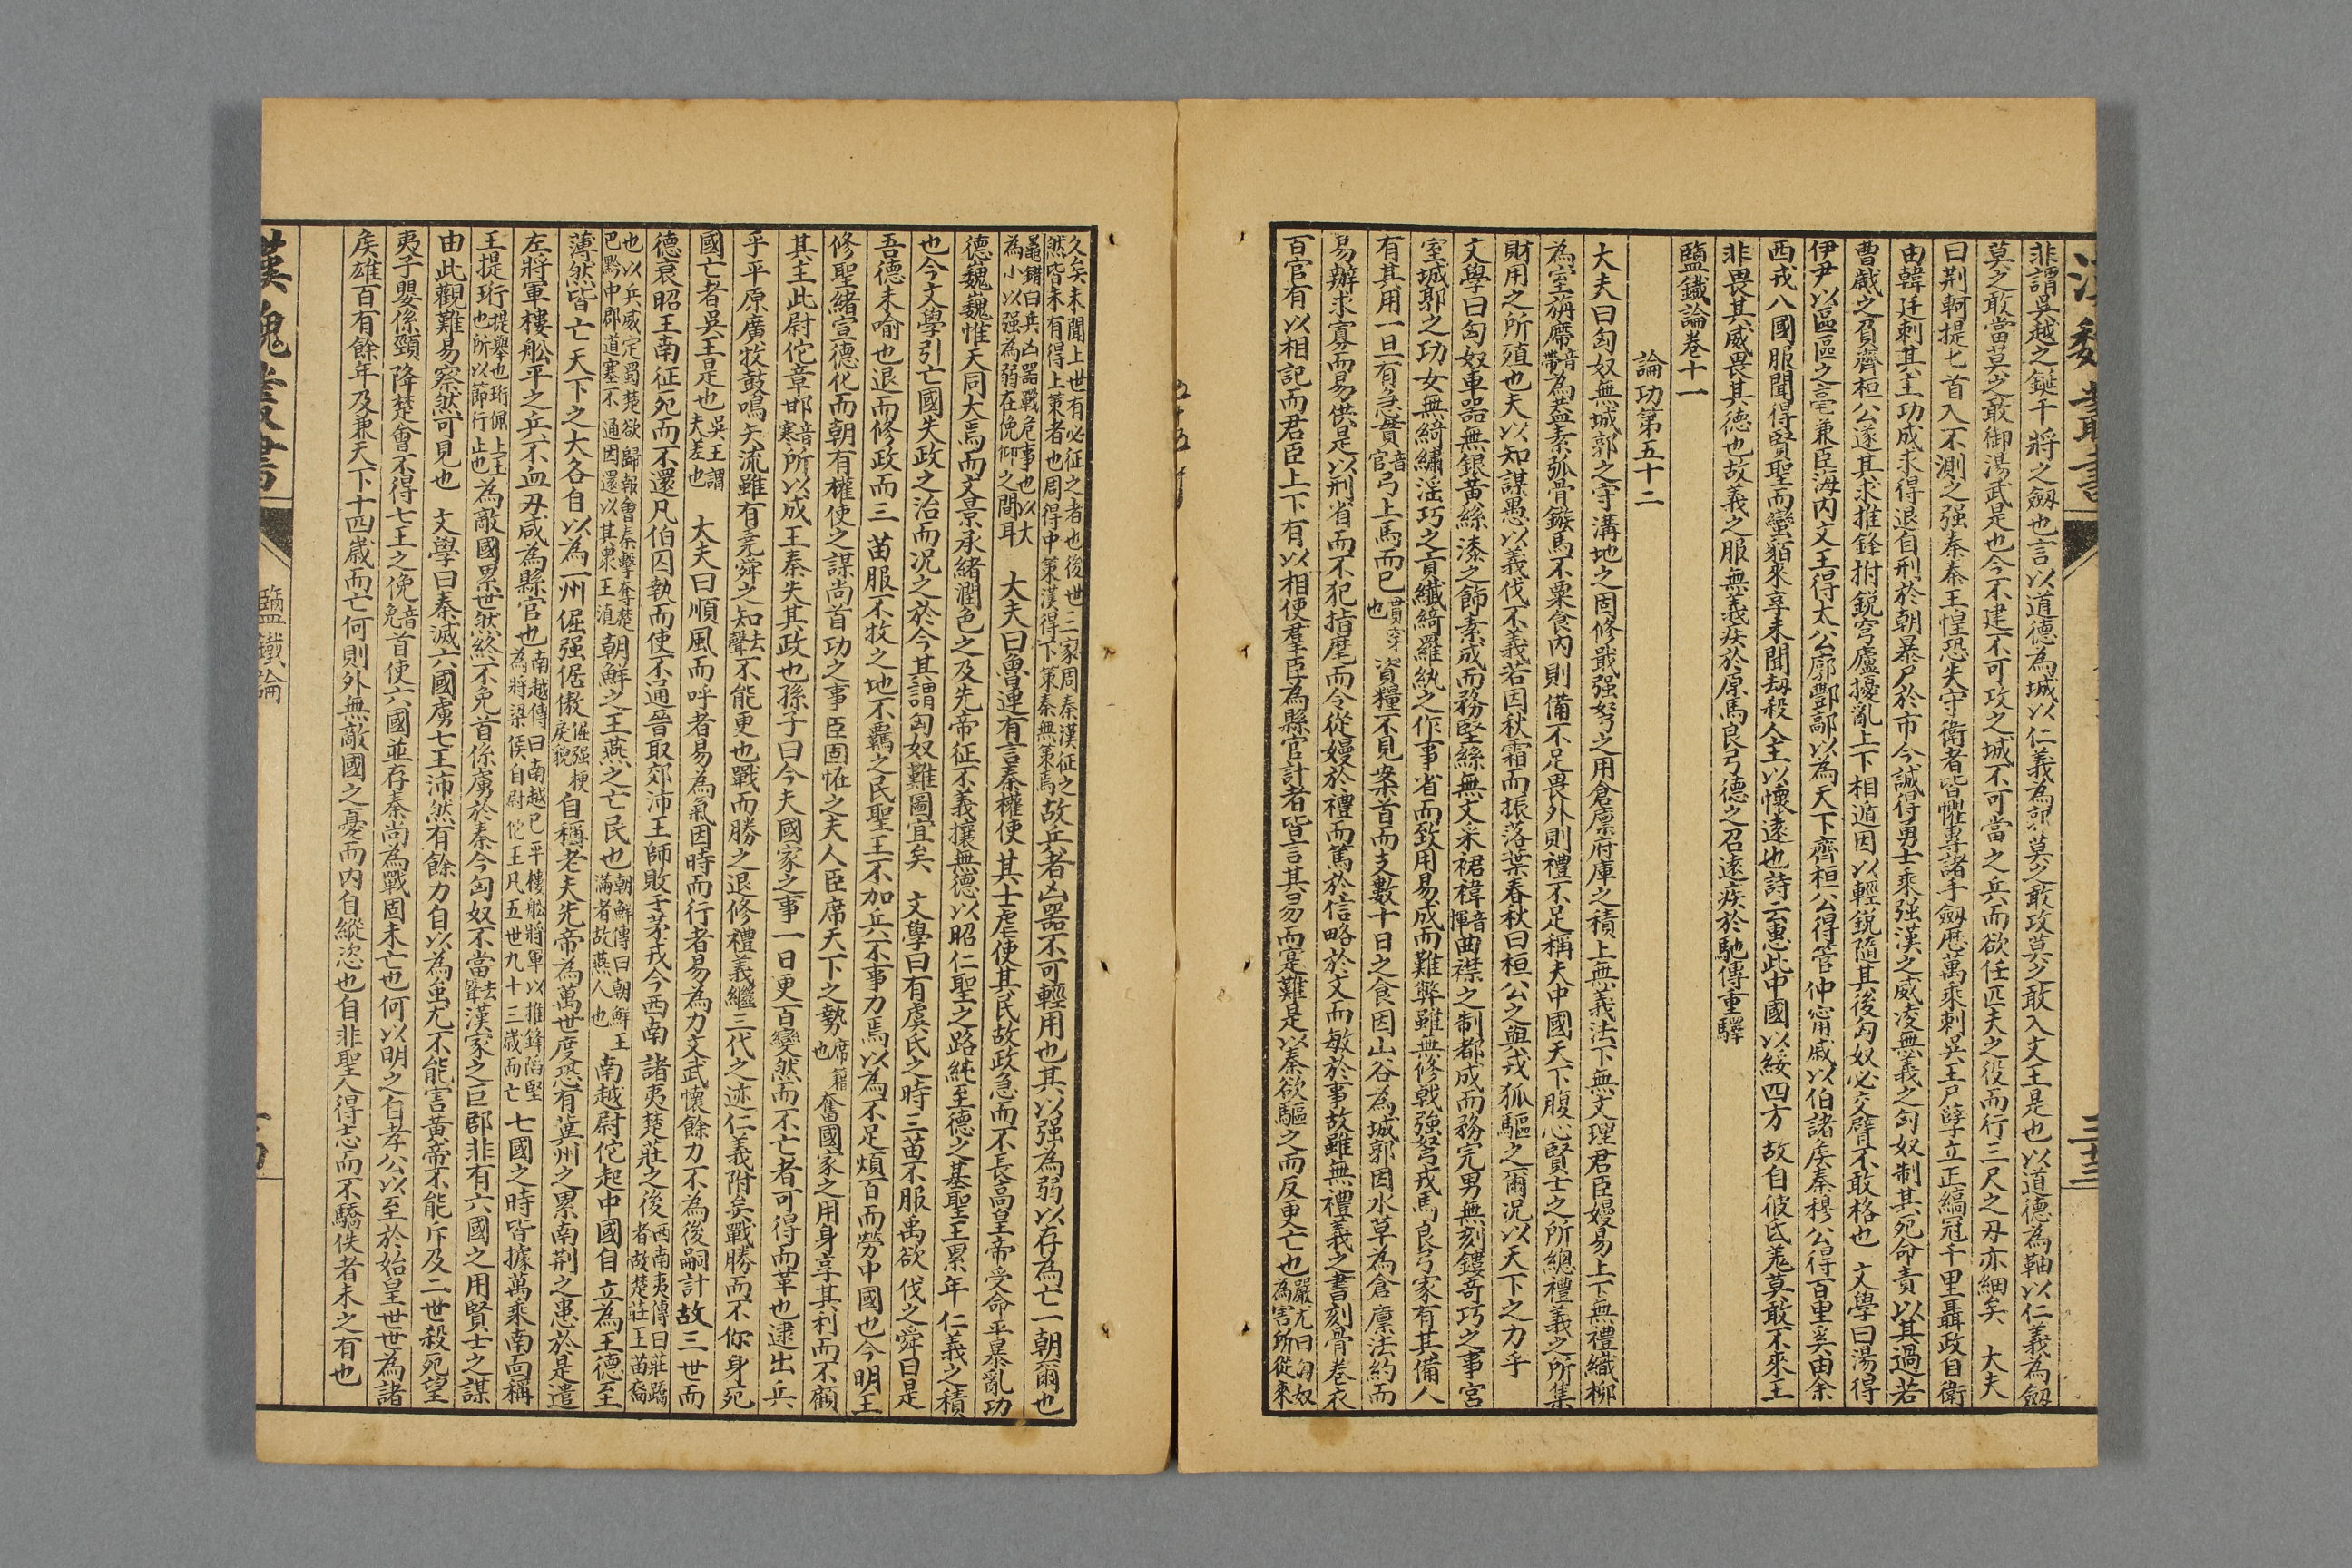 漢魏叢書
三十三
非謂吳越之鋌干將之劔也言以道德為城以仁義為郭莫之敢攻莫之敢入文王是也以道德為軸以仁義為劔
莫之敢當莫之敢御湯武是也今不建不可攻之城不可當之兵而欲任匹夫之役而行三尺之刃亦細矣　大夫
曰荆軻提匕首入不測之强秦秦王惶恐失守衛者皆懼專諸手劔歷萬乘刺吳王尸孽立正縞冠千里聶政自衛
由韓廷刺其主功成求得退自刑於朝暴尸於市今誠得勇士乘强漢之威凌無義之匈奴制其死命責以其過若
曹劌之負齊桓公遂其求推鋒拊銳穹廬擾亂上下相遁因以輕銳隨其後匈奴必交臂不敢格也　文學曰湯得
伊尹以區區之亳兼臣海内文王得太公廓酆鄗以為天下齊桓公得管仲甯戚以伯諸侯秦穆公得百里奚由余
西戎八國服聞得賢聖而蠻貊來享未聞劫殺人主以懷遠也詩云惠此中國以綏四方故自彼氐羌莫敢不來王
非畏其威畏其德也故義之服無義疾於原馬良弓德之召遠疾於馳傳重驛
鹽鐵論卷十一
論功第五十二
大夫曰匈奴無城郭之守溝地之固修戟强弩之用倉廪府庫之積上無義法下無文理君臣嫚易上下無禮織柳
為室旃廗音帶為蓋素弧骨鏃馬不粟食内則備不足畏外則禮不足稱夫中國天下腹心賢士之所總禮義之所集
財用之所殖也夫以知謀愚以義伐不義若因秋霜而振落葉春秋曰桓公之與戎狐驅之爾況以天下之力乎
文學曰匈奴車器無銀黃絲漆之飾素成而務堅絲無文采裙褘音揮曲襟之制都成而務完男無刻鏤奇巧之事宮
室城郭之功女無綺繡淫巧之貢纖綺羅紈之作事省而致用易成而難弊雖無修戟强弩戎馬良弓家有其備人
有其用一旦有急貫音官弓上馬而已貫穿也資糧不見案首而支數十日之食因山谷為城郭因水草為倉廪法約而
易辦求寡而易供是以刑省而不犯指麾而令從嫚於禮而篤於信略於文而敏於事故雖無禮義之書刻骨卷衣
百官有以相記而君臣上下有以相使羣臣為縣官計者皆言其易而寔難是以秦欲驅之而反更亡也嚴尤曰匈奴為害所從來
久矣未聞上世有必征之者也後世三家周秦漢征之然皆未有得上策者也周得中策漢得下策秦無策焉故兵者凶器不可輕用也其以强為弱以存為亡一朝爾也
鼂錯曰兵凶器戰危事也以大為小以强為弱在俛仰之間耳　大夫曰魯連有言秦權使其士虐使其民故政急而不長高皇帝受命平暴亂功
德巍巍惟天同大焉而文景承緒潤色之及先帝征不義攘無德以昭仁聖之路純至德之基聖王累年仁義之積
也今文學引亡國失政之治而況之於今其謂匈奴難圖宜矣　文學曰有虞氏之時三苗不服禹欲伐之舜曰是
吾德未喻也退而修政而三苗服不牧之地不羈之民聖王不加兵不事力焉以為不足煩百而勞中國也今明王
修聖緒宣德化而朝有權使之謀尚首功之事臣固恠之夫人臣席天下之勢席籍也奮國家之用身享其利而不顧
其主此尉佗章邯音寒所以成王秦失其政也孫子曰今夫國家之事一日更百變然而不亡者可得而革也逮出兵
乎平原廣牧鼓鳴矢流雖有堯舜之知去聲不能更也戰而勝之退修禮義繼三代之迹仁義附矣戰勝而不你身死
國亡者吳王是也吳王謂夫差也　大夫曰順風而呼者易為氣因時而行者易為力文武懷餘力不為後嗣計故三世而
德衰昭王南征死而不還凡伯囚執而使不通晉取郊沛王師敗于茅戎今西南諸夷楚莊之後西南夷傳曰莊蹻者故楚莊王苗裔
也以兵威定蜀楚欲歸報會秦擊奪楚巴黔中郡道塞不通因還以其衆王滇朝鮮之王燕之亡民也朝鮮傳曰朝鮮王滿者故燕人也南越尉佗起中國自立為王德至
薄然皆亡天下之大各自以為一州倔强倨傲倔强梗戾貌自稱老夫先帝為萬世度恐有冀州之累南荆之患於是遣
左將軍樓舩平之兵不血刃咸為縣官也南越傳曰南越已平樓舩將軍以推鋒陷堅為將梁侯自尉佗王凡五世九十三歲而亡七國之時皆據萬乘南面稱
王提珩提舉也珩佩上玉也所以節行止也為敵國累世然終不免首係虜於秦今匈奴不當去聲漢家之巨郡非有六國之用賢士之謀
由此觀難易察然可見也　文學曰秦滅六國虜七王沛然有餘力自以為蚩尤不能害黃帝不能斥及二世殺死望
夷子嬰係頸降楚會不得七王之俛音免首使六國並存秦尚為戰固未亡也何以明之自孝公以至於始皇世世為諸
侯雄百有餘年及兼天下十四歲而亡何則外無敵國之憂而内自縱恣也自非聖人得志而不驕佚者未之有也
漢魏叢書
鹽鐵論